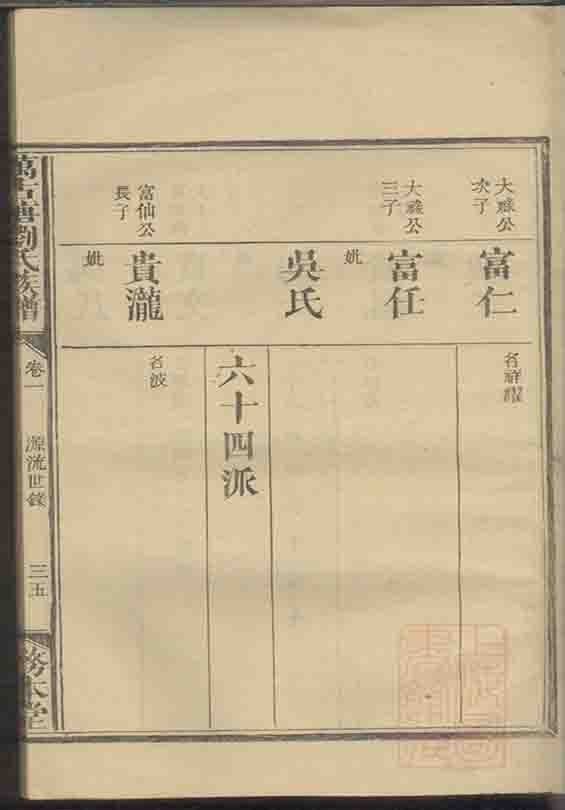 大發公次子
富仁
名祥躍
大發公三子
富任
妣
吳氏
六十四派
富仙公長子
貴瀧
名波
妣
萬石塘劉氏族譜
卷一
源流世錄
三五
務本堂